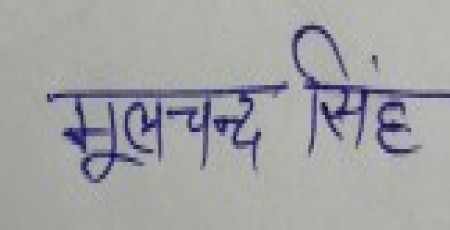 मूलचन्द सिंह